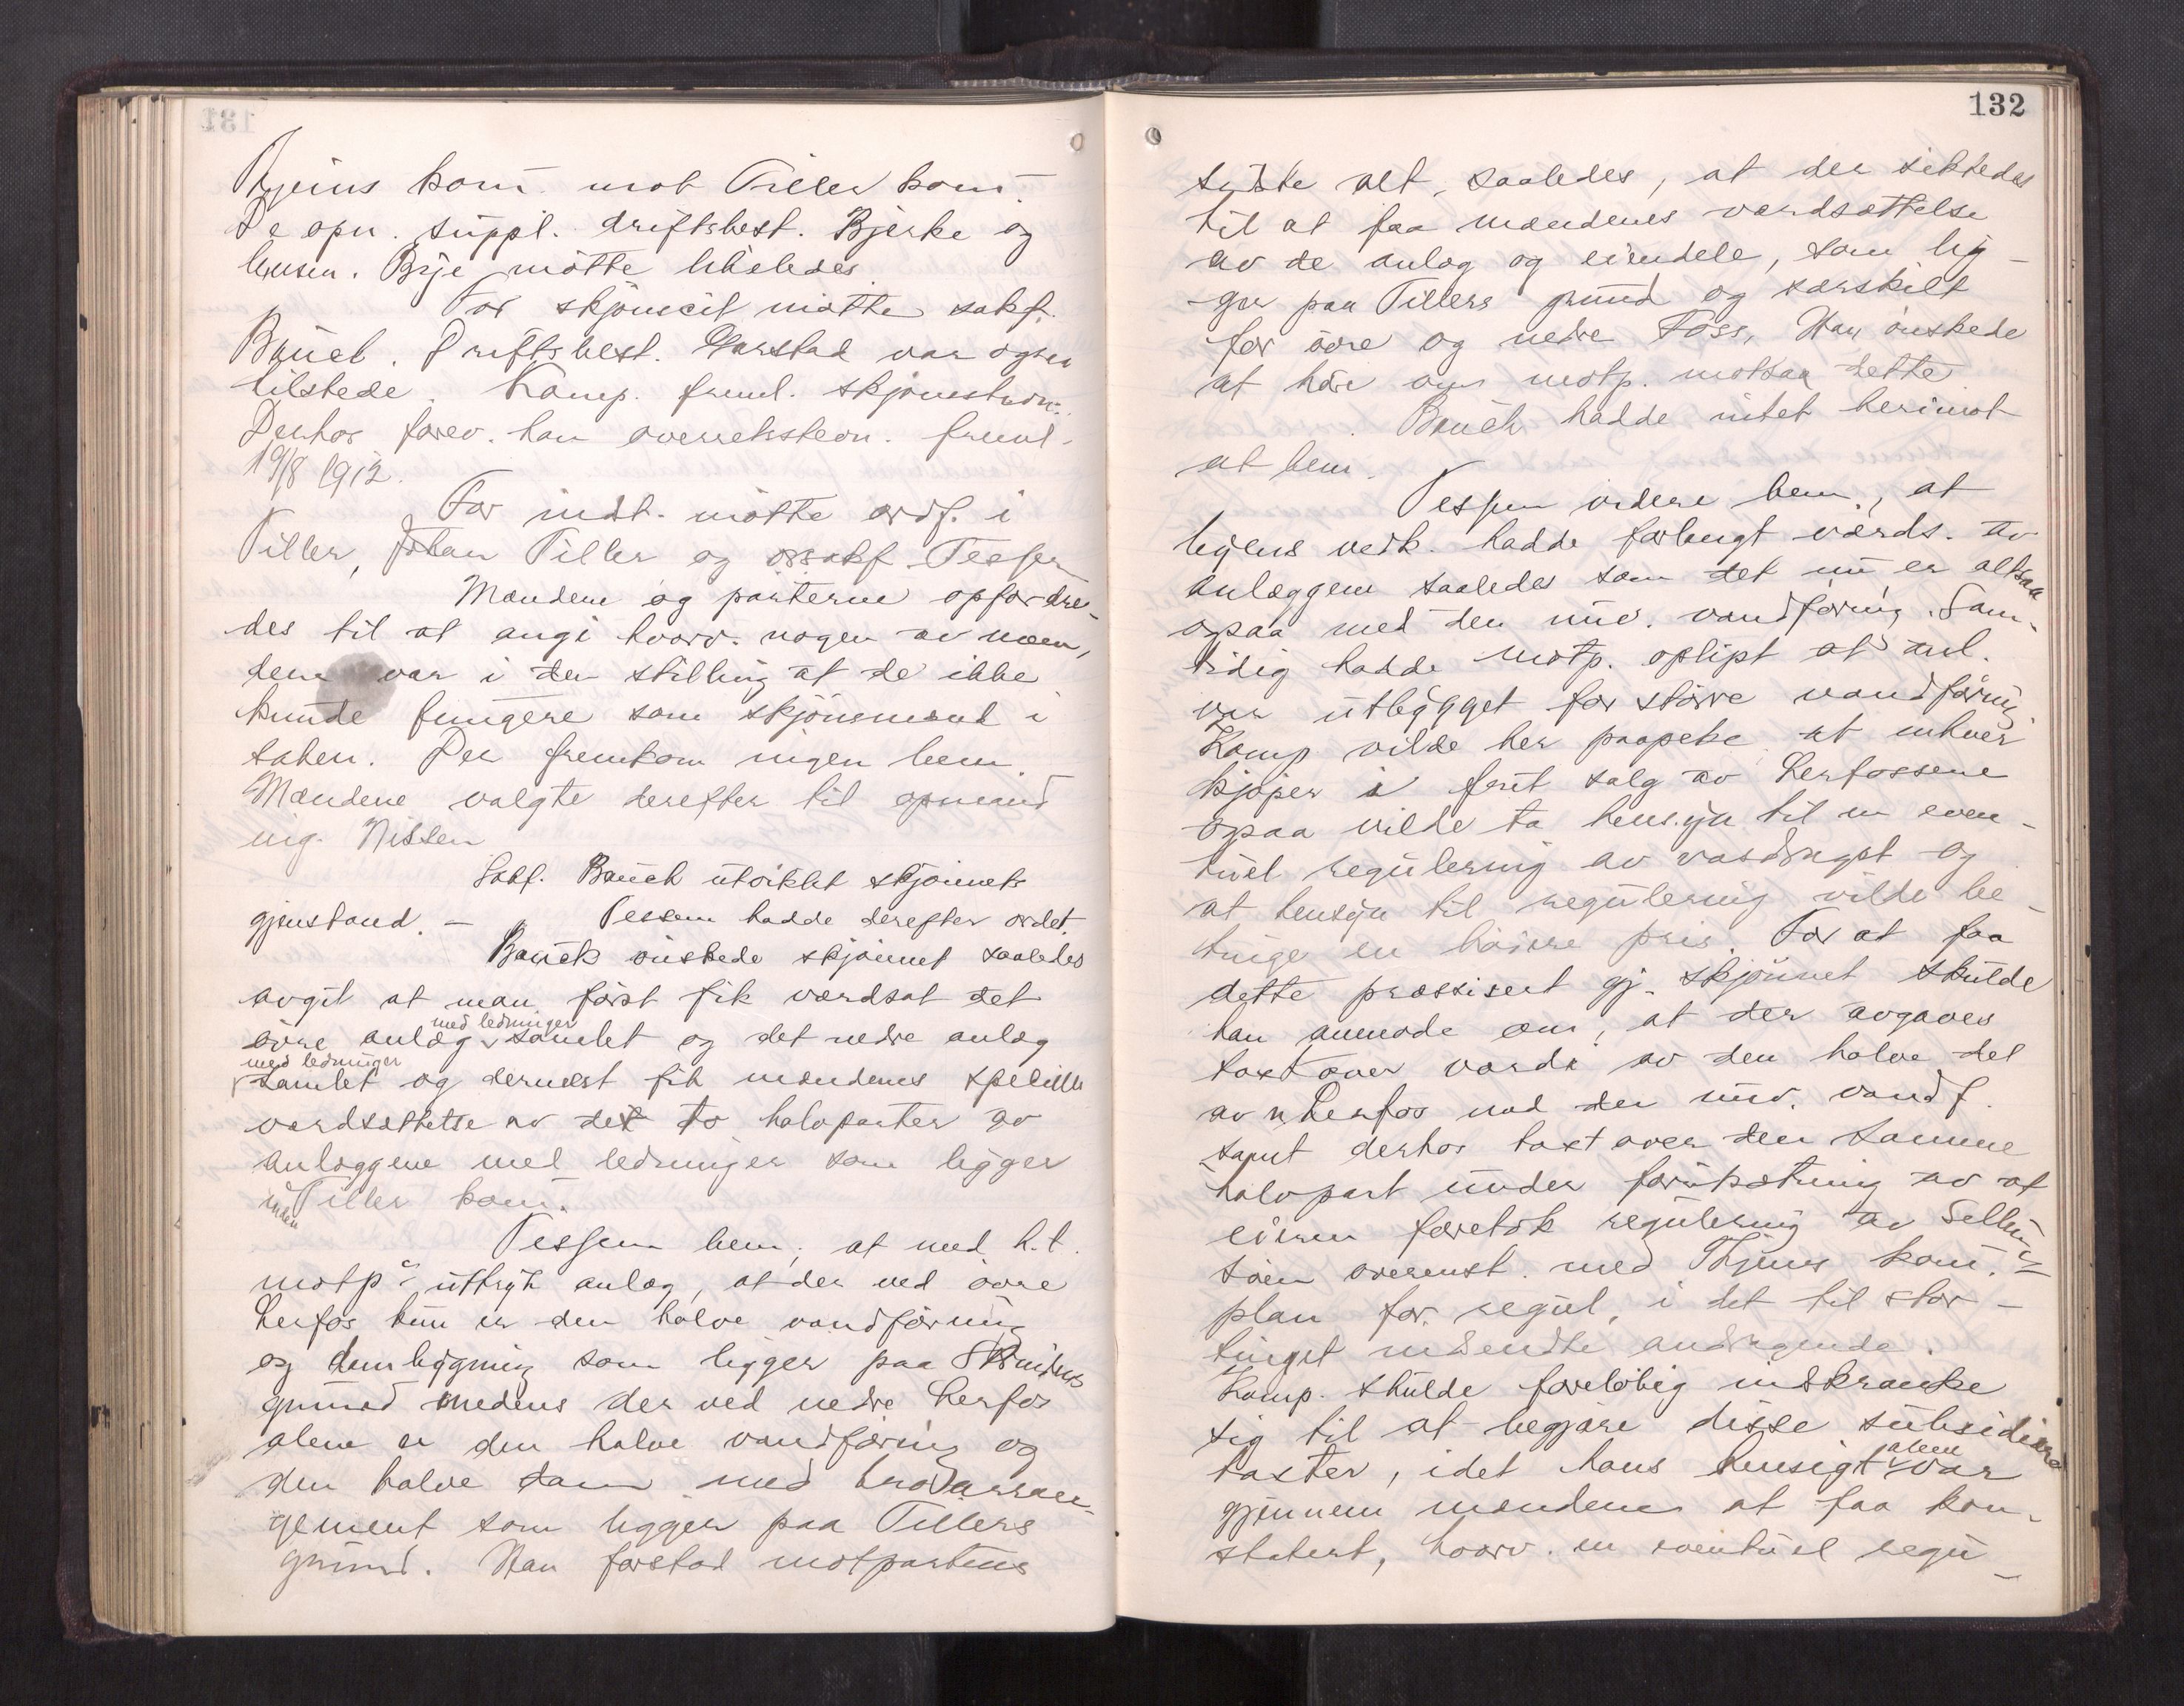 Thjems kom. mot Tiller kom.
De opn. suppl. driftsbest. Bjerke og
Brye møtte likeledes.
For skjønscit møtte sakf.
Bauck. Driftsbest. Garstad var ogsaa
tilstede. Komp. freml. skjønsstevn.
Derhos forev. han overretsstevn. freml.
19/8 1912.
For indst. møtte ordf. i
Tiller, Johan Tiller og orsakf. Tessem
Mændene og parterne opfordre-
des til at angi hvorv. nogen av mæn-
dene var i den stilling at de ikke
kunde fungere som skjønsmænd i
saken. Der fremkom ingen bem.
Mændene valgte derefter til opmand
ing. Nissen
Sakf. Bauck utviklet skjønnets
gjenstand. — Tessem hadde derefter ordet.
Bauck ønskede skjønnet saaledes
avgit at man først fik værdsat det
med ledninger
øvre anlæg samlet og det nedre anlæg
med ledninger
samlet og dernæst fik mændenes specielle
værdsættelse av de to halvparter av
anlæggene med ledninger som ligger
inden Tiller kom.
Tessem bem., at med h.t.
motp's uttryk anlæg, at der ved øvre
Lerfos kun er den halve vandføring
og dembygning som ligger paa Strindens
grund medens der ved nedre Lerfos
alene er den halve vandføring og
den halve dam med broarran-
gement som ligger paa Tillers
grund. Han forstod motpartens
132
sidste alt saaledes, at der siktedes
til at faa mændenes værdsættelse
av de anlæg og eiendele, som lig-
ger paa Tillers grund og særskilt
for øvre og nedre Foss. Han ønskede
at høre om motp. motsaa dette.
Bauck hadde intet herimot
at bem.
Tessem videre bem., at
byens vedk. hadde forlangt værds. av
anlæggene saaledes som det nu er altsaa
ogsaa med den nuv. vandføring. Sam-
tidig hadde motp. oplyst at anl.
var utbygget for større vandføring.
Komp. vilde her paapeke at enhver
kjøper i frit salg av Lerfossene
ogsaa vilde ta hensyn til en even-
tuel regulering av vasdraget og
at hensyn til regulering vilde be-
tinge en høiere pris. For at faa
dette præssisert gj. skjønnet skulde
han anmode om, at der avgaves
takst over værdi av den halve del
av n Lerfos med den nuv. vandf.
samt derhos takst over den samme
halvpart under forutsætning av at
eieren foretok regulering av Selbu-
sjøen overenst. med Thjems kom.s
plan for regul. i det til stor-
tinget indsendte andragende.
Komp. skulde foreløbig indskrænke
sig til at begjære disse subsidiære
takster, idet hans hensigt alene var
gjennem mændene at faa kon-
statert, hvorv. en eventuel regu-